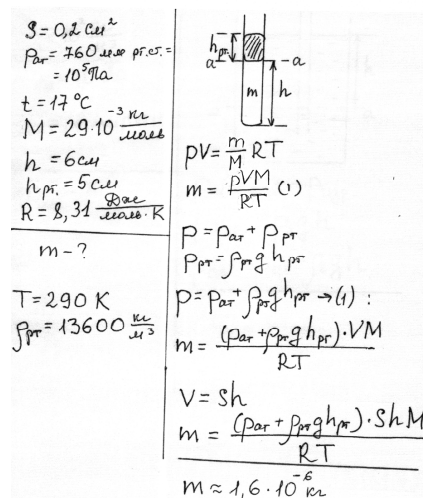 S = 0,2 см²
pат = 760 мм рт.ст. =
= 10⁵ Па
t = 17°C
M = 29·10⁻³ кг/моль
h = 6 см
hрт. = 5 см
R = 8,31 Дж/моль·К
m - ?
T = 290 K
ρрт = 13600 кг/м³
hрт.
a
-a
m
h
pV = m/M RT
m = pVM/RT (1)
p = pат + pрт
pрт = ρрт g hрт
p = pат + ρрт g hрт → (1) :
m = (pат + ρрт g hрт)·VM/RT
V = Sh
m = (pат + ρрт g hрт)·ShM/RT
m ≈ 1,6·10⁻⁶ кг